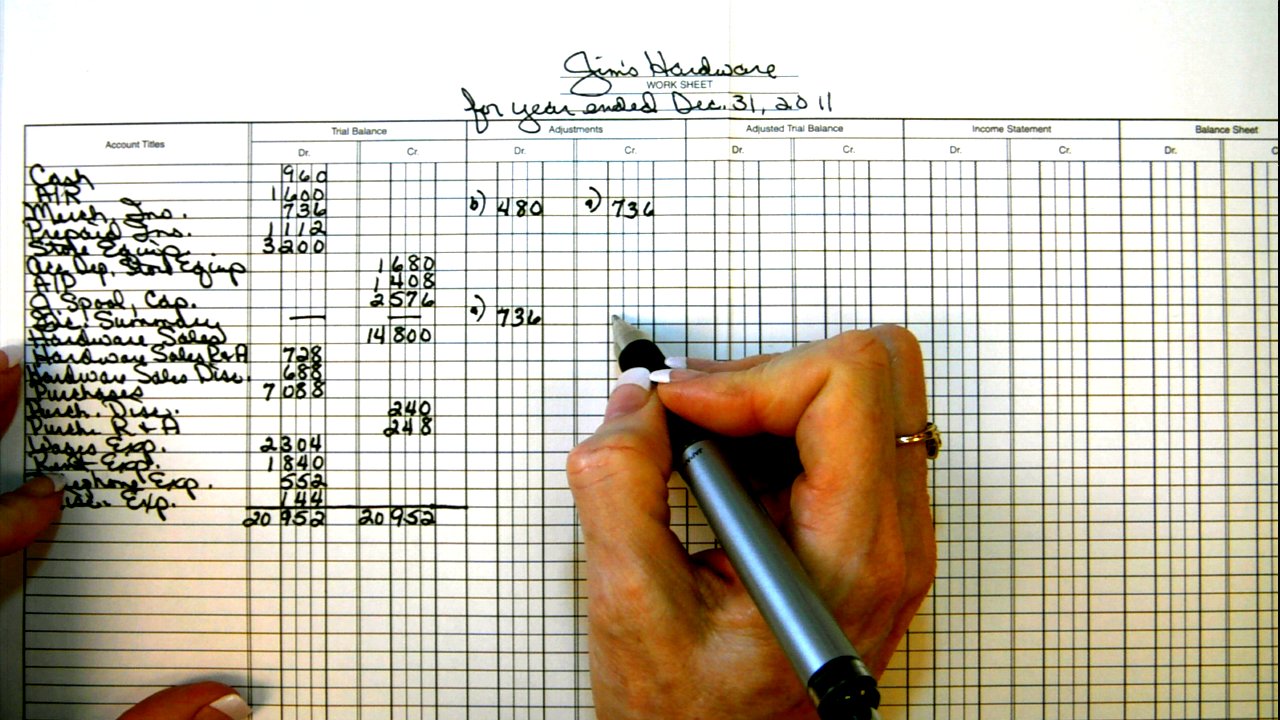 Jim's Hardware
WORK SHEET
for year ended Dec. 31, 2011
Account Titles Trial Balance Adjustments Adjusted Trial Balance Income Statement Balance Sheet
Dr. Cr. Dr. Cr. Dr. Cr. Dr. Cr. Dr. C
Cash 960
A/R 1600
Merch. Inv. 736 b) 480 a) 736
Prepaid Ins. 1112
Store Equip. 3200
Acc. Dep. Store Equip 1680
A/P 1408
J. Spool, Cap. 2576
Inc. Summary — — a) 736
Hardware Sales 14800
Hardware Sales R&A 728
Hardware Sales Disc. 688
Purchases 7088
Purch. Disc. 240
Purch. R & A 248
Wages Exp. 2304
Rent Exp. 1840
ephone Exp. 552
Exp. 144
20952 20952